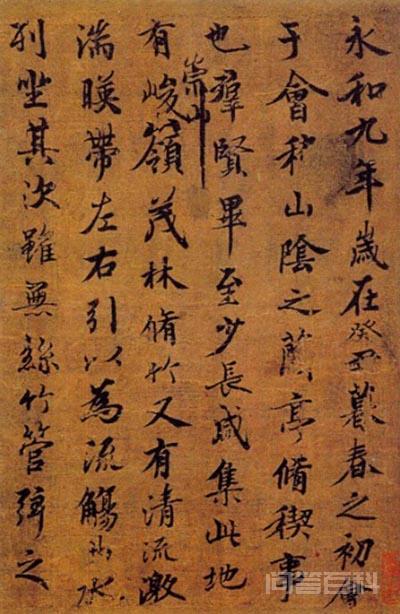 永和九年歲在癸丑暮春之初會
于會稽山陰之蘭亭脩稧事
也羣賢畢至少長咸集此地
有崇山峻嶺茂林脩竹又有清流激
湍暎帶左右引以為流觴曲水
列坐其次雖無絲竹管弦之
问答百科